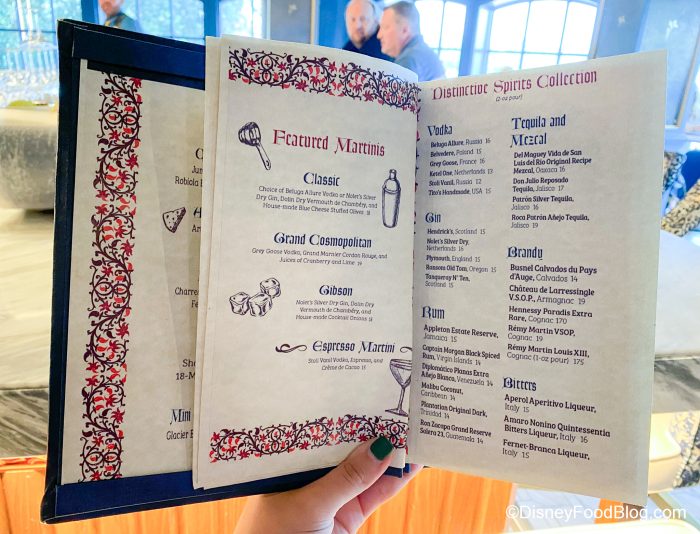 Jun
Robiola B
Ar
Charre
Fe
Sho
18-M
Mini
Glacier B
Featured Martinis
Classic
Choice of Beluga Allure Vodka or Nolet's Silver
Dry Gin, Dolin Dry Vermouth de Chambéry, and
House-made Blue Cheese Stuffed Olives 18
Grand Cosmopolitan
Grey Goose Vodka, Grand Marnier Cordon Rouge, and
Juices of Cranberry and Lime 19
Gibson
Nolet's Silver Dry Gin, Dolin Dry
Vermouth de Chambéry, and
House-made Cocktail Onions 18
Espresso Martini
Stoli Vanil Vodka, Espresso, and
Crème de Cacao 15
Distinctive Spirits Collection
(2-oz pour)
Vodka
Beluga Allure, Russia 16
Belvedere, Poland 15
Grey Goose, France 16
Ketel One, Netherlands 13
Stoli Vanil, Russia 12
Tito's Handmade, USA 15
Gin
Hendrick's, Scotland 15
Nolet's Silver Dry,
Netherlands 16
Plymouth, England 15
Ransom Old Tom, Oregon 15
Tanqueray N° Ten,
Scotland 15
Rum
Appleton Estate Reserve,
Jamaica 15
Captain Morgan Black Spiced
Rum, Virgin Islands 14
Diplomático Planas Extra
Añejo Blanco, Venezuela 14
Malibu Coconut,
Caribbean 14
Plantation Original Dark,
Trinidad 14
Ron Zacapa Grand Reserve
Solera 23, Guatemala 14
Tequila and
Mezcal
Del Maguey Vida de San
Luis del Rio Original Recipe
Mezcal, Oaxaca 16
Don Julio Reposado
Tequila, Jalisco 17
Patrón Silver Tequila,
Jalisco 16
Roca Patrón Añejo Tequila,
Jalisco 19
Brandy
Busnel Calvados du Pays
d'Auge, Calvados 14
Château de Larressingle
V.S.O.P., Armagnac 19
Hennessy Paradis Extra
Rare, Cognac 170
Rémy Martin VSOP,
Cognac 19
Rémy Martin Louis XIII,
Cognac (1-oz pour) 175
Bitters
Aperol Aperitivo Liqueur,
Italy 15
Amaro Nonino Quintessentia
Bitters Liqueur, Italy 16
Fernet-Branca Liqueur,
Italy 15
©DisneyFoodBlog.com